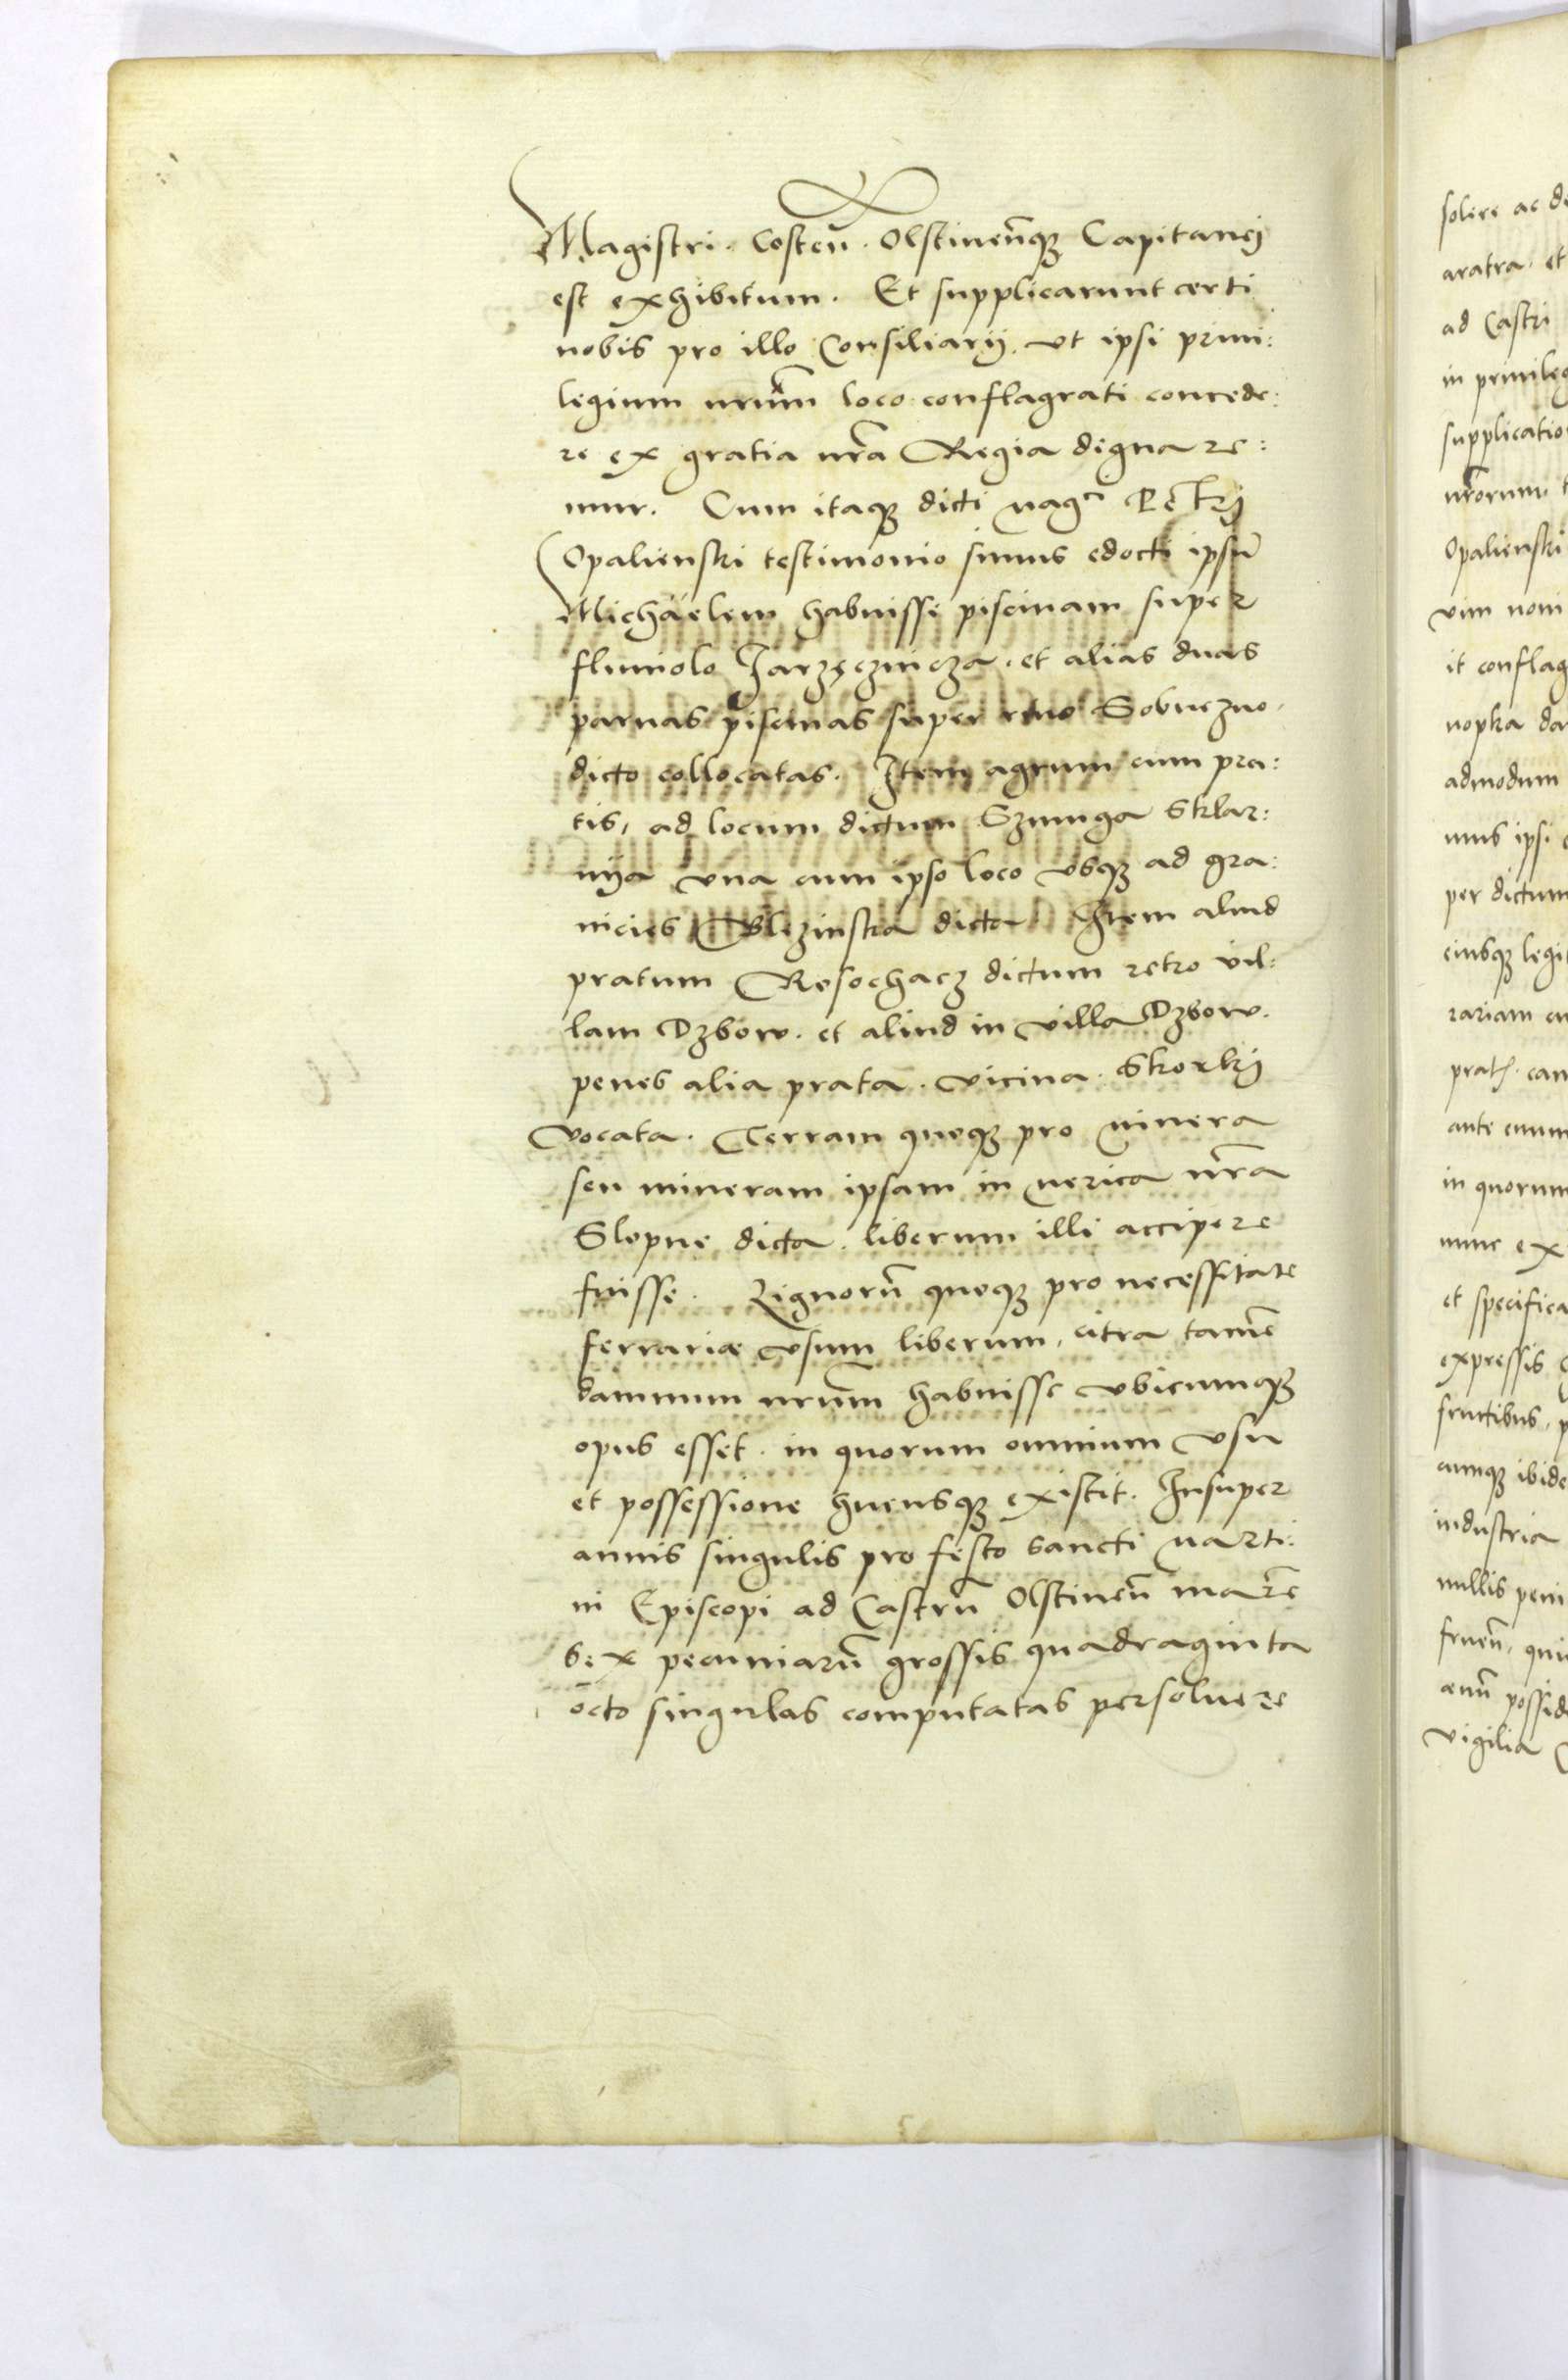 Magistri. Costen̄. Olstinen̄qꝫ Capitanej
est exhibitum. Et supplicarunt certi
nobis pro illo Consiliarij. vt ipsi priui:
legium nr̄um loco conflagrati concede:
re ex gratia nr̄a Regia dignare:
mur. Cum itaqꝫ dicti mag̃ci Petrj
Opalienski testimonio simus edocti ipsū
Michäelem habuisse piscinam super
fluuiolo Jarzęcznicza. et alias duas
paruas piscinas super riuo Sobuczno.
dicto collocatas. Item agrum cum pra:
tis, ad locum dictum Szmuga Sklar:
nija vna cum ipso loco vsqꝫ ad gra:
nicies Blezinska dicta. Item aliud
pratum Rosochacz dictum retro vil:
lam Dzbow. et aliud in villa Dzbow.
penes alia prata. vicina. Skorkj
vocata. Terram quoqꝫ pro minera
seu mineram ipsam in merica nr̄a
Slopne dicta. liberum illi accipere
fuisse. Lignorū quoqꝫ pro necessitate
ferrariæ vsum liberum, citra tamē
damnum nr̄um habuisse vbicumqꝫ
opus esset. in quorum omnium vsu
et possessione hucusqꝫ existit. Insuper
annis singulis pro festo sancti Marti:
ni Episcopi ad Castrū Olstinen̄ mar̄c
sex pecuniarū grossis quadraginta
octo singulas computatas persoluere
solere ac de
aratra. et
ad Castri
in priuileg
supplicatio
nr̄orum.
Opalienski
vim noui
it conflag
nopka da
admodum
mus ipsi
per dictum
eiusqꝫ legit
rariam
prat. cam
ante
in quorum
nunc ex
et specifica
expressis
fructibus, p
aumqꝫ ibide
industria
nullis peni
fruen̄, qui
possid
vigilia